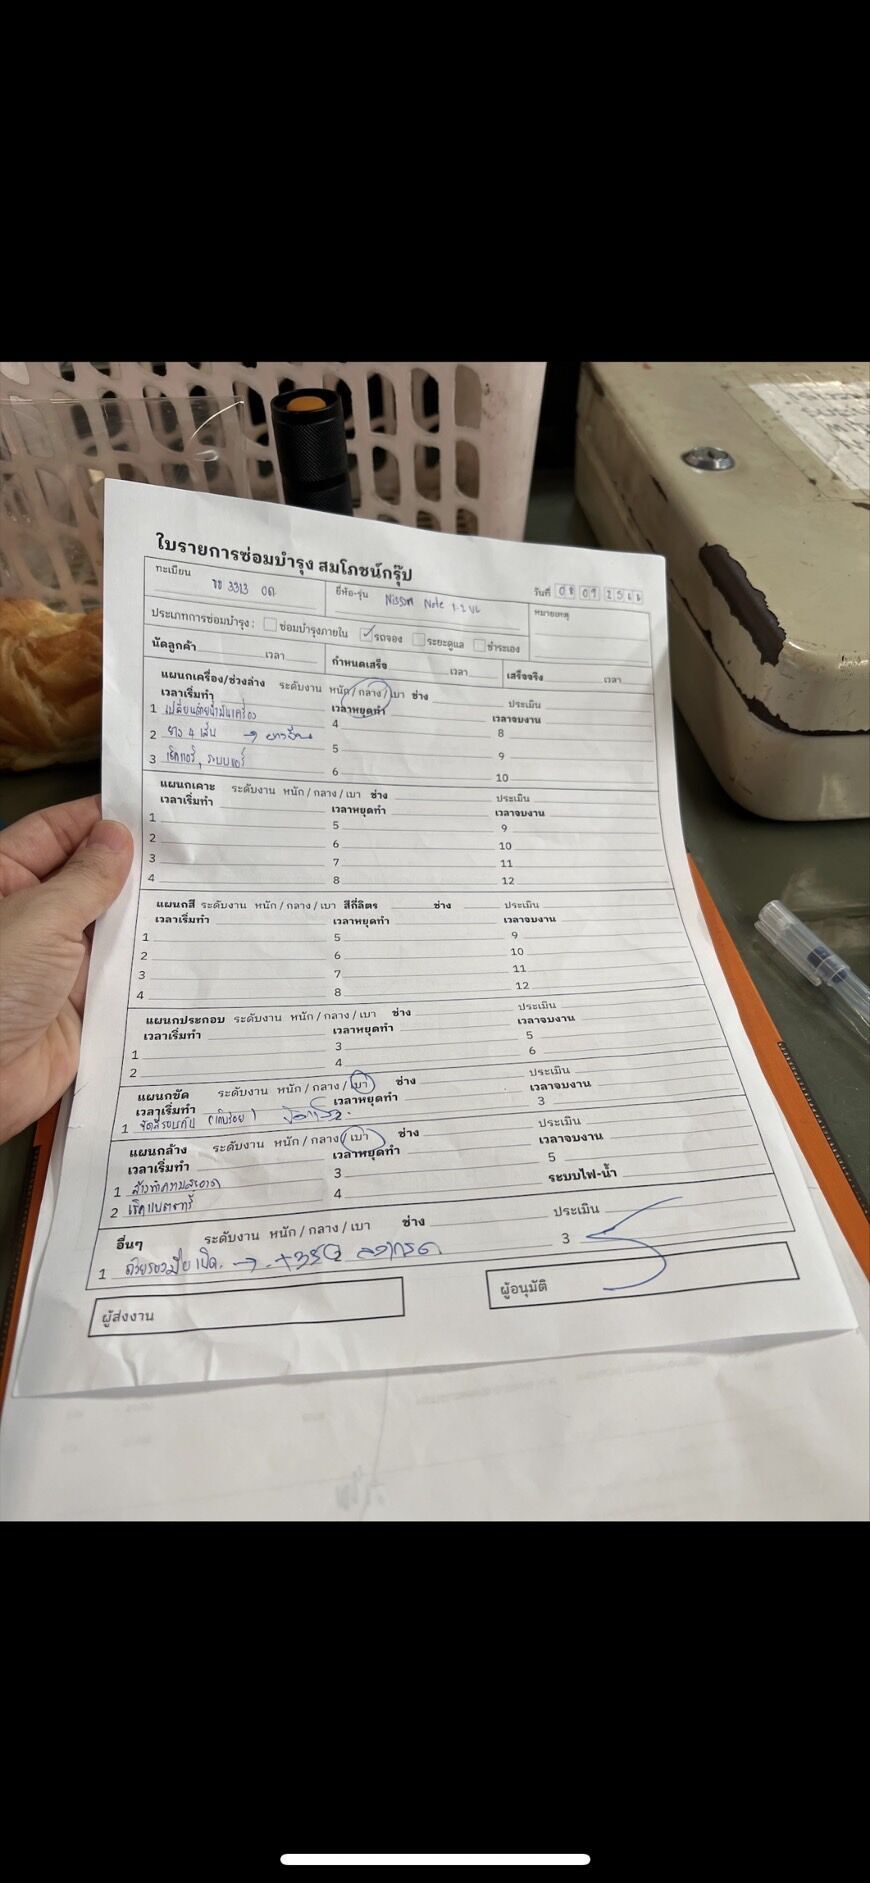 ใบรายการซ่อมบำรุง สมโภชน์กรุ๊ป
วันที่
ทะเบียน 3313 กท
ยี่ห้อ-รุ่น Nissan Note 1.2 VL
หมายเหตุ
ประเภทการซ่อมบำรุง : ซ่อมบำรุงภายใน ✓ รถจอง ระยะดูแล ชำระเอง
นัดลูกค้า เวลา กำหนดเสร็จ เวลา เสร็จจริง เวลา
แผนกเครื่อง/ช่วงล่าง ระดับงาน หนัก / กลาง / เบา ช่าง ประเมิน
เวลาเริ่มทำ เวลาหยุดทำ เวลาจบงาน
1 เปลี่ยนถ่ายน้ำมันเครื่อง 4 8
2 ยาง 4 เส้น → 5 9
3 เช็คแอร์, ระบบแอร์ 6 10
แผนกเคาะ ระดับงาน หนัก / กลาง / เบา ช่าง ประเมิน
เวลาเริ่มทำ เวลาหยุดทำ เวลาจบงาน
1 5 9
2 6 10
3 7 11
4 8 12
แผนกสี ระดับงาน หนัก / กลาง / เบา สีกี่ลิตร ช่าง ประเมิน
เวลาเริ่มทำ เวลาหยุดทำ เวลาจบงาน
1 5 9
2 6 10
3 7 11
4 8 12
แผนกประกอบ ระดับงาน หนัก / กลาง / เบา ช่าง ประเมิน
เวลาเริ่มทำ เวลาหยุดทำ เวลาจบงาน
1 3 5
2 4 6
แผนกขัด ระดับงาน หนัก / กลาง / เบา ช่าง ประเมิน
เวลาเริ่มทำ เวลาหยุดทำ เวลาจบงาน
1 ขัดสีรอบคัน (เก็บรอย) 3
แผนกล้าง ระดับงาน หนัก / กลาง / เบา ช่าง ประเมิน
เวลาเริ่มทำ เวลาหยุดทำ เวลาจบงาน
1 ล้างทำความสะอาด 3 5
2 เช็คแบตเตอรี่ 4 ระบบไฟ-น้ำ
อื่นๆ ระดับงาน หนัก / กลาง / เบา ช่าง ประเมิน
1 ถ้วยรองมือเปิด → 3
ผู้ส่งงาน
ผู้อนุมัติ